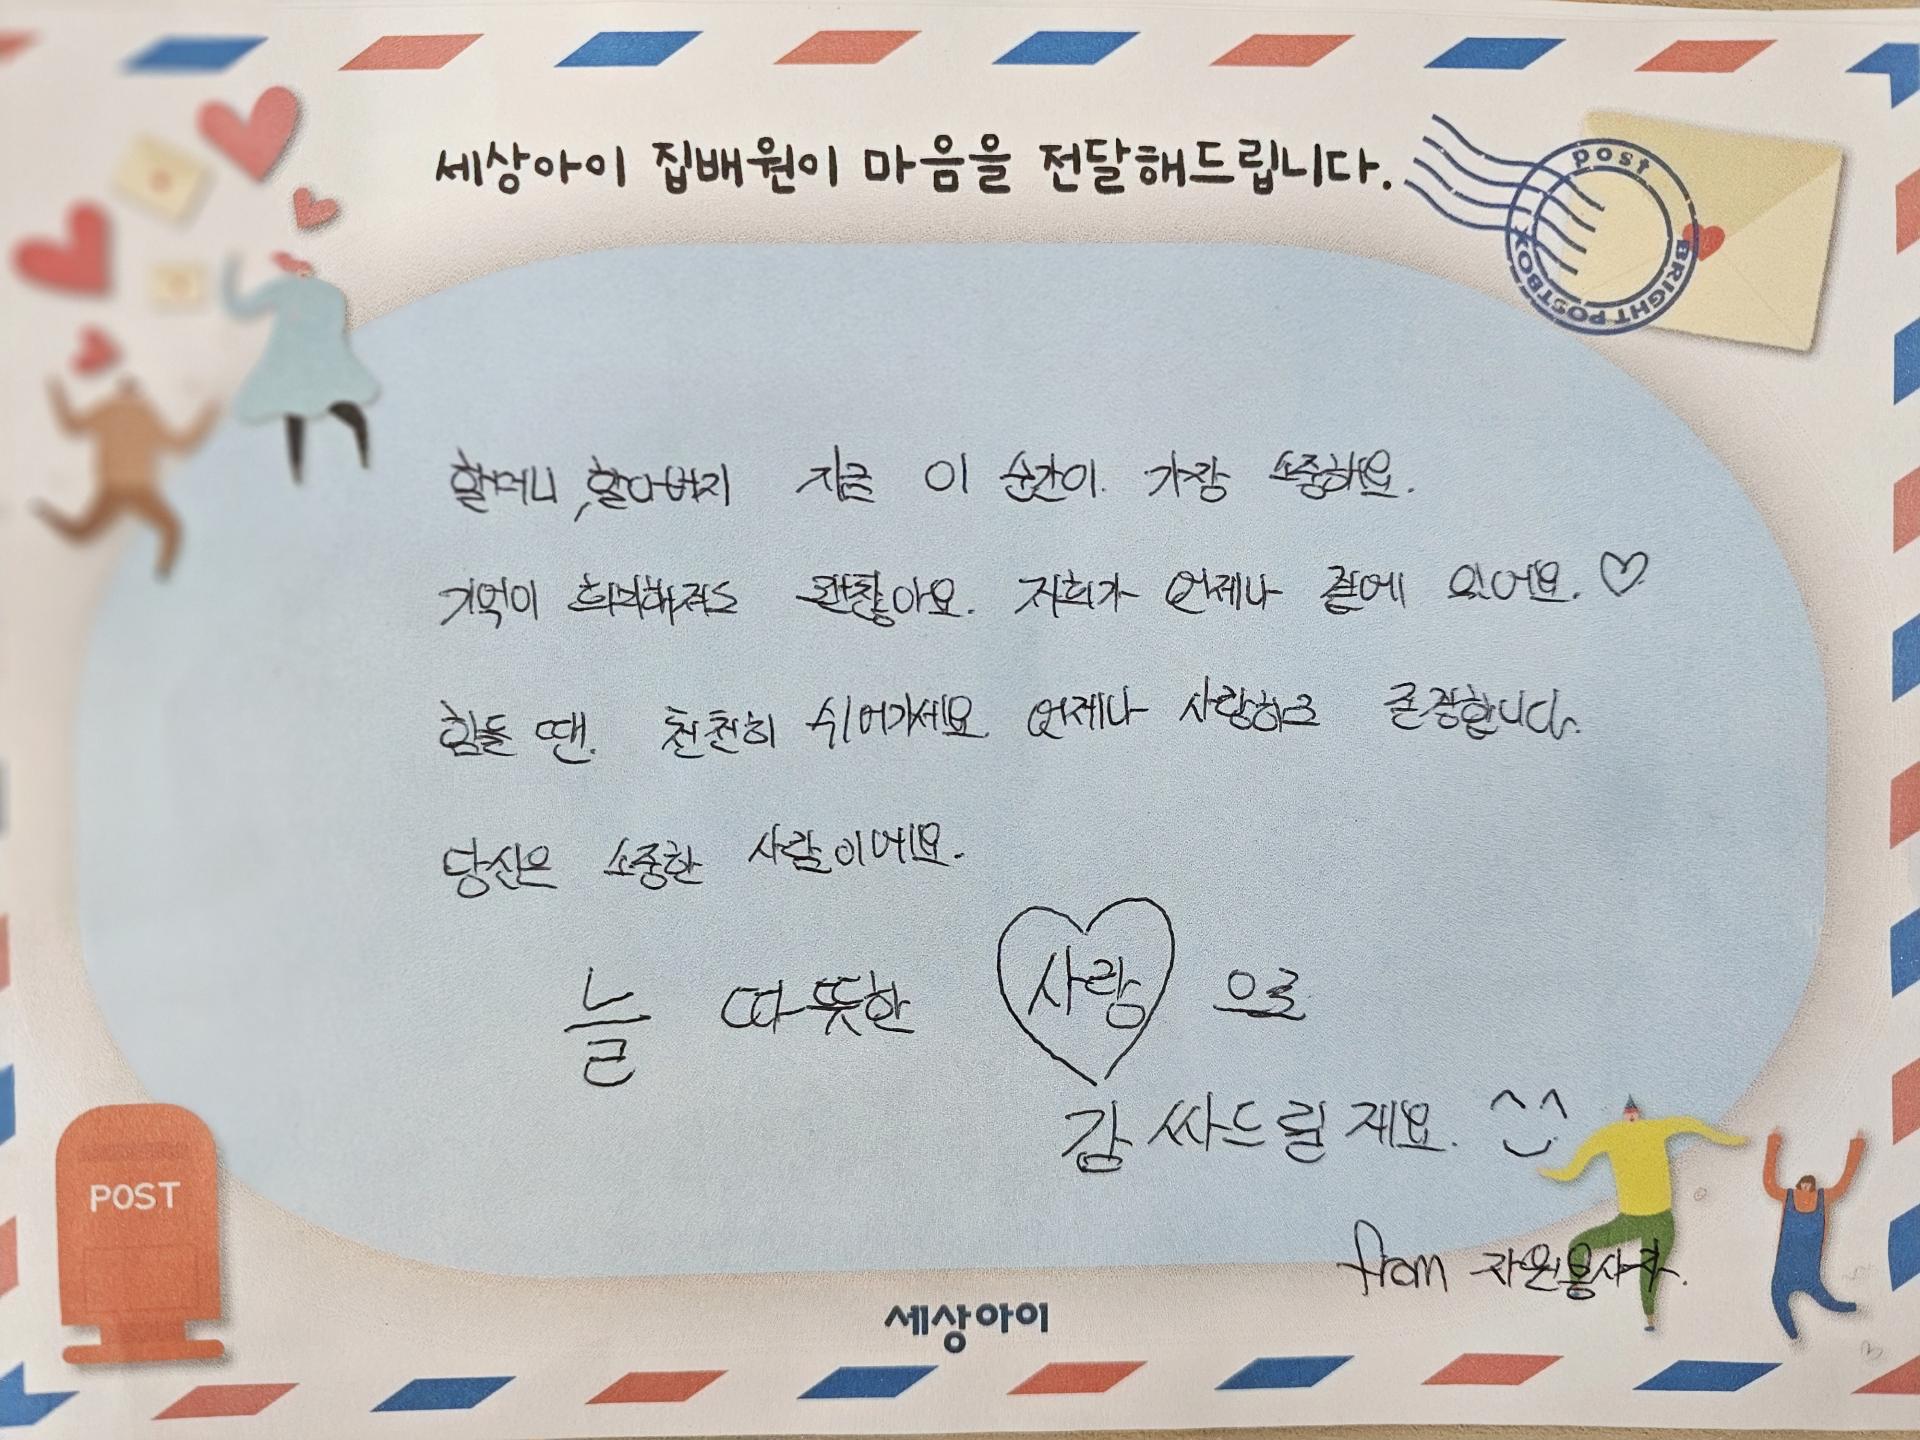 세상아이 집배원이 마음을 전달해드립니다.
post
BRIGHT POSTBOX
할머니, 할아버지 지금 이 순간이 가장 소중해요.
기억이 희미해져도 괜찮아요. 저희가 언제나 곁에 있어요. ♡
힘들 땐. 천천히 쉬어가세요. 언제나 사랑하고 존경합니다.
당신은 소중한 사람이에요.
늘 따뜻한 사랑으로
감싸드릴게요. ^^
from 자원봉사자.
POST
세상아이